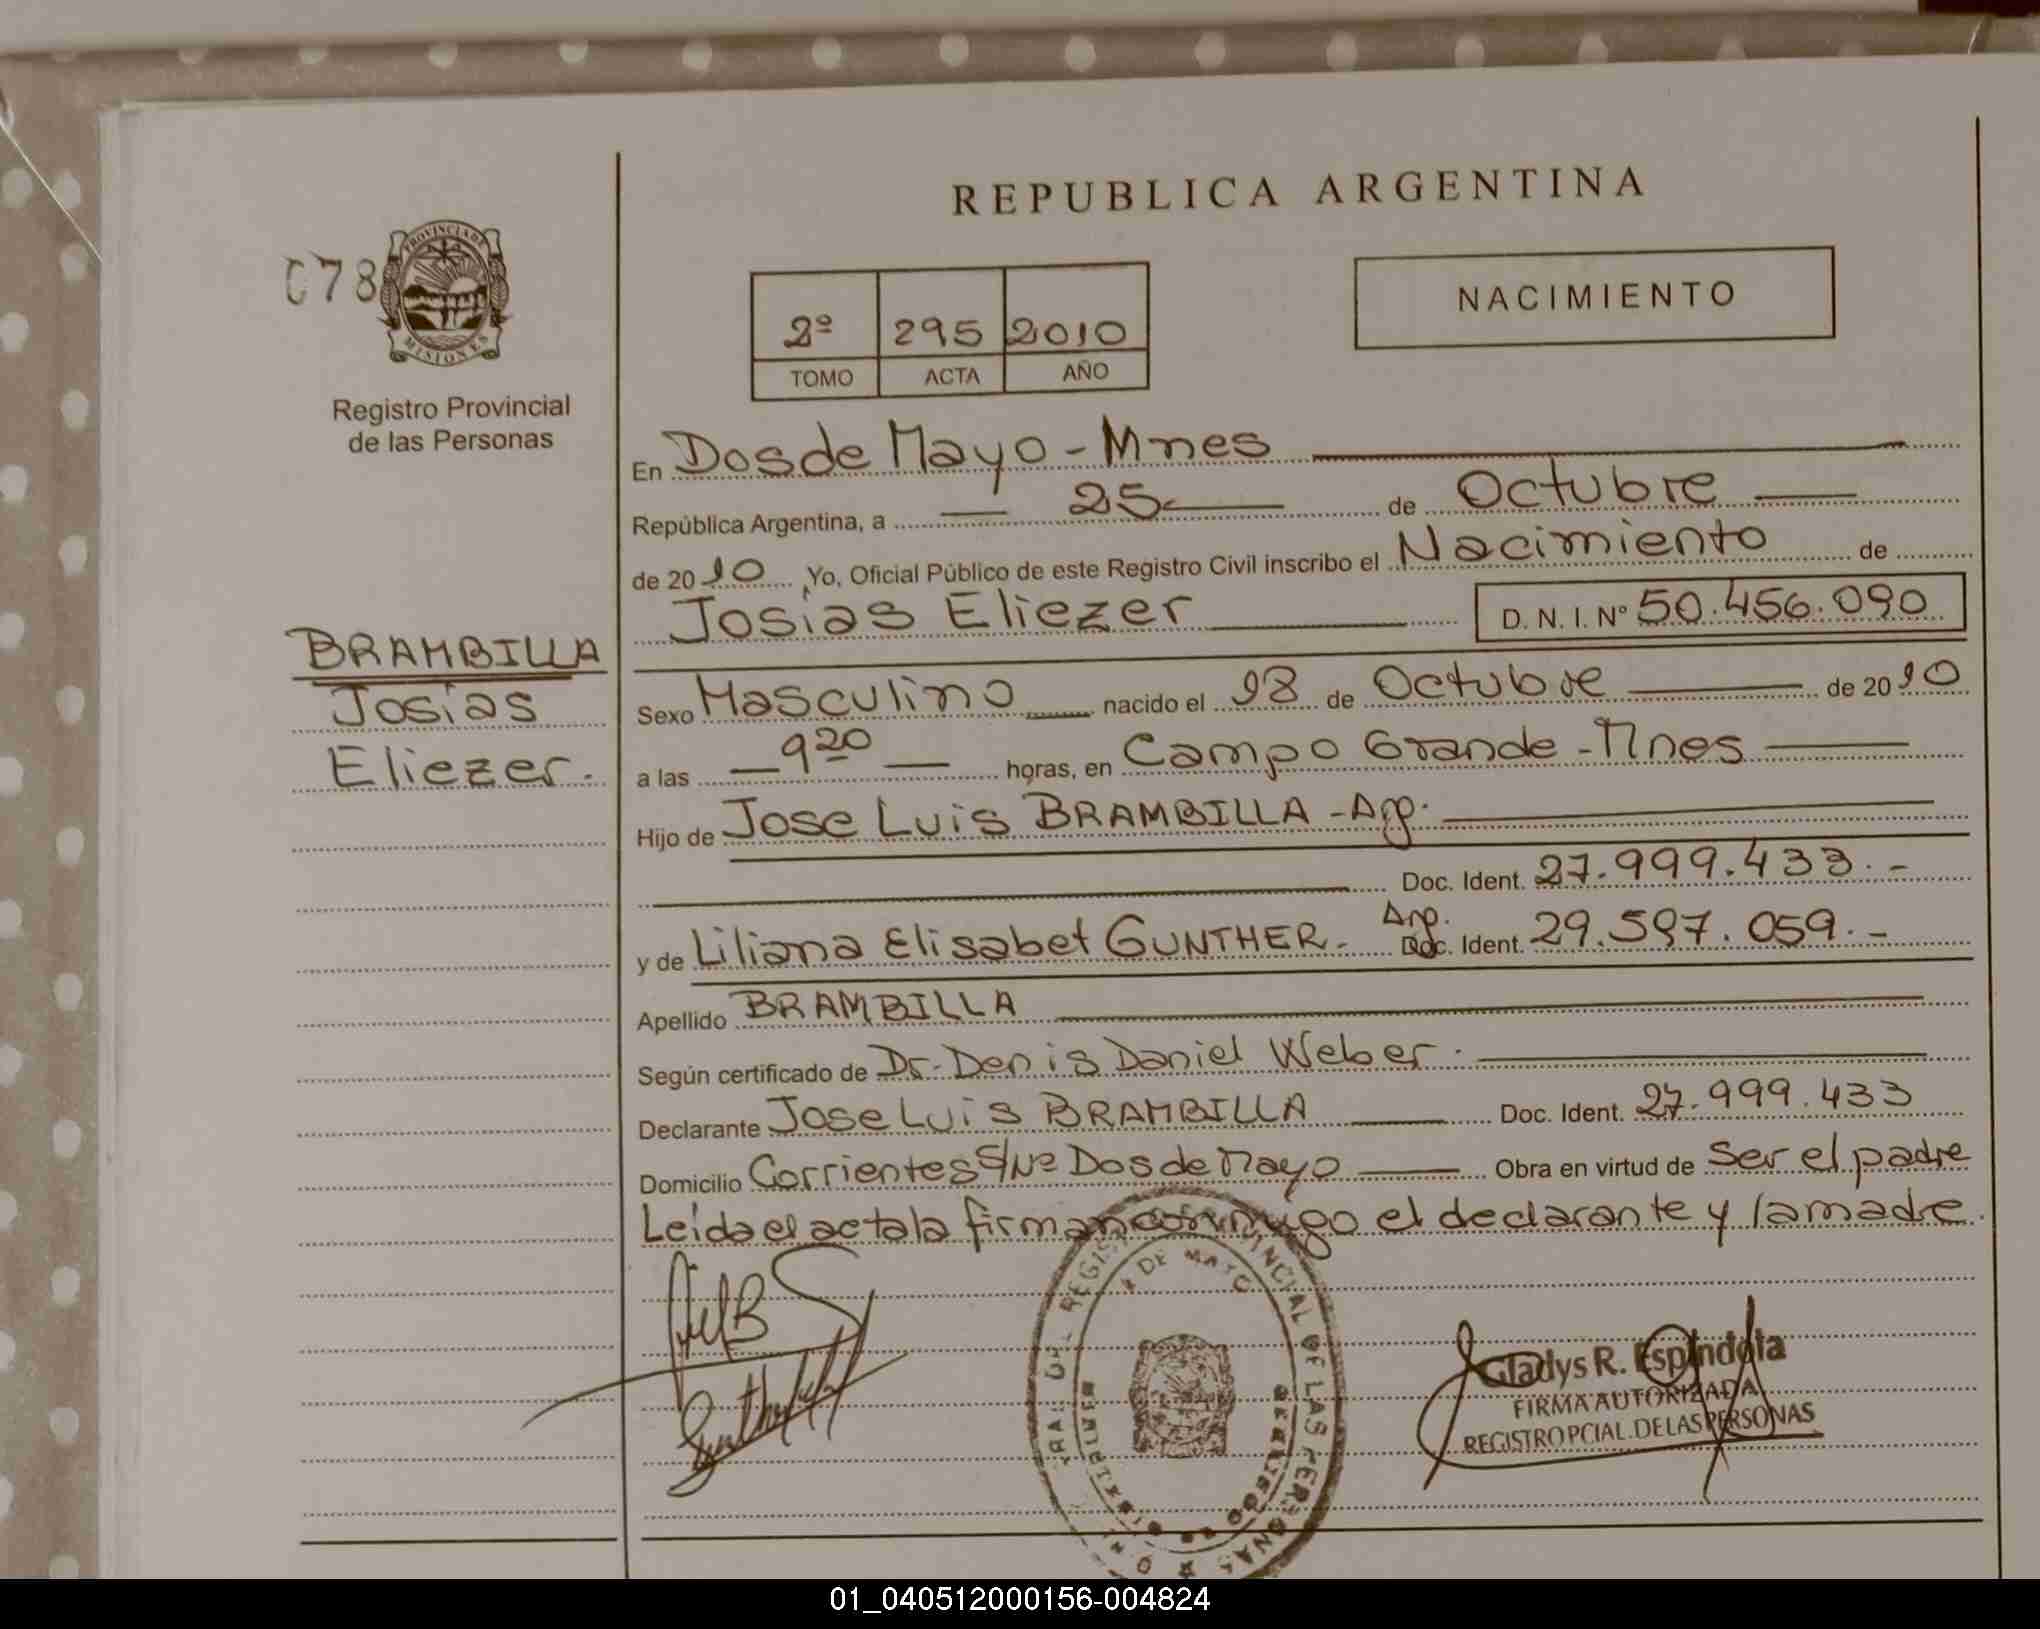 REPUBLICA ARGENTINA
C78
PROVINCIA DE
MISIONES
Registro Provincial
de las Personas
NACIMIENTO
2º 295 2010
TOMO ACTA AÑO
En Dos de Mayo - Mnes
República Argentina, a 25 de Octubre
de 2010 Yo, Oficial Público de este Registro Civil inscribo el Nacimiento de
Josías Eliezer D. N. I. Nº 50.456.090
BRAMBILLA
Josías
Eliezer.
Sexo Masculino nacido el 18 de Octubre de 2010
a las 9 20 horas, en Campo Grande - Mnes
Hijo de Jose Luis BRAMBILLA - Arg.
Doc. Ident. 27.999.433.-
y de Liliana Elisabet GUNTHER.- Arg. Doc. Ident. 29.597.059.-
Apellido BRAMBILLA
Según certificado de Dr. Denis Daniel Weber.
Declarante Jose Luis BRAMBILLA Doc. Ident. 27.999.433
Domicilio Corrientes S/Nº Dos de Mayo Obra en virtud de Ser el padre
Leída el acta la firman conmigo el declarante y la madre.
DE MAYO
Gladys R. Espindola
FIRMA AUTORIZADA
REGISTRO PCIAL. DE LAS PERSONAS
01_040512000156-004824